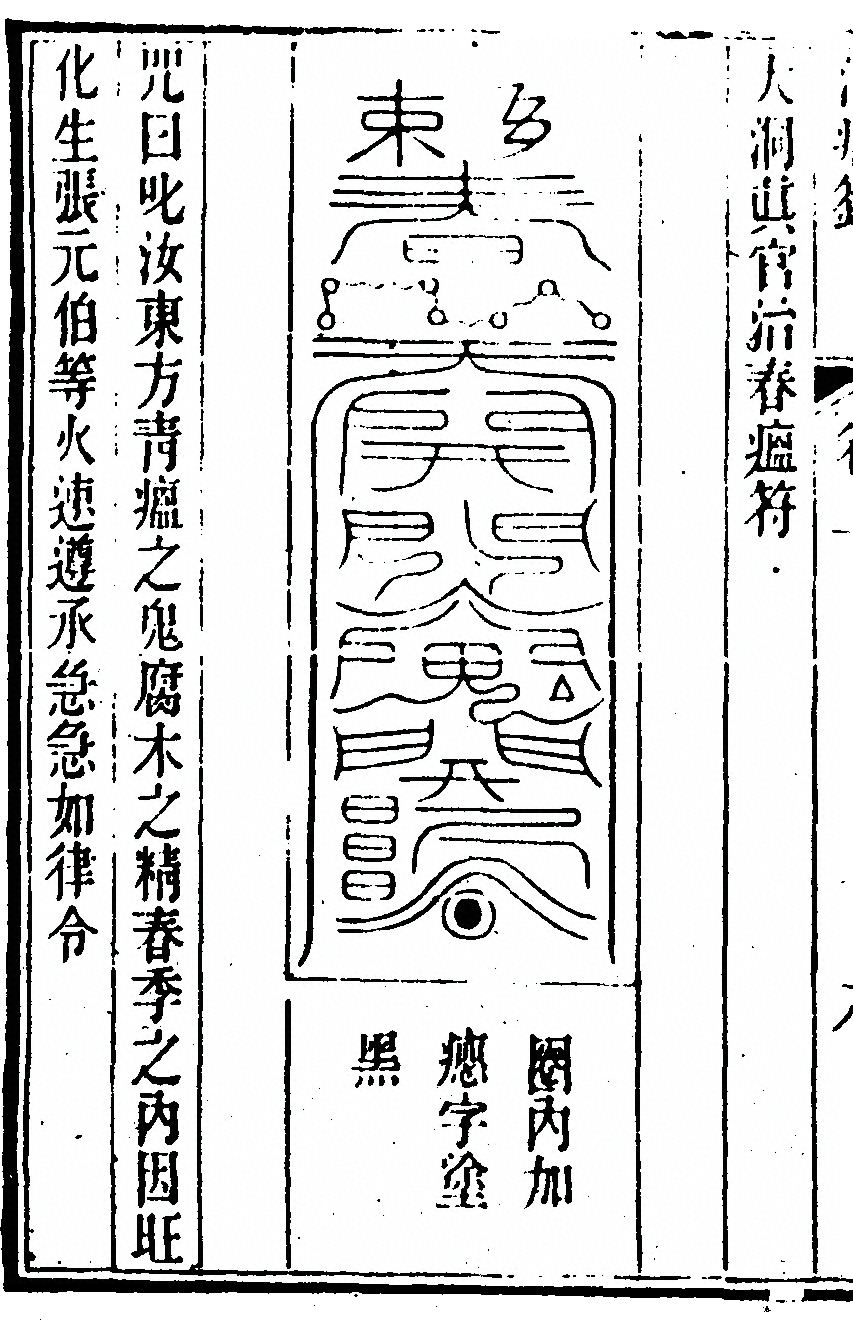 大洞眞官治春瘟符
圈內加
瘟字塗
黑
咒曰叱汝東方青瘟之鬼腐木之精春季之內因旺
化生張元伯等火速遵承急急如律令